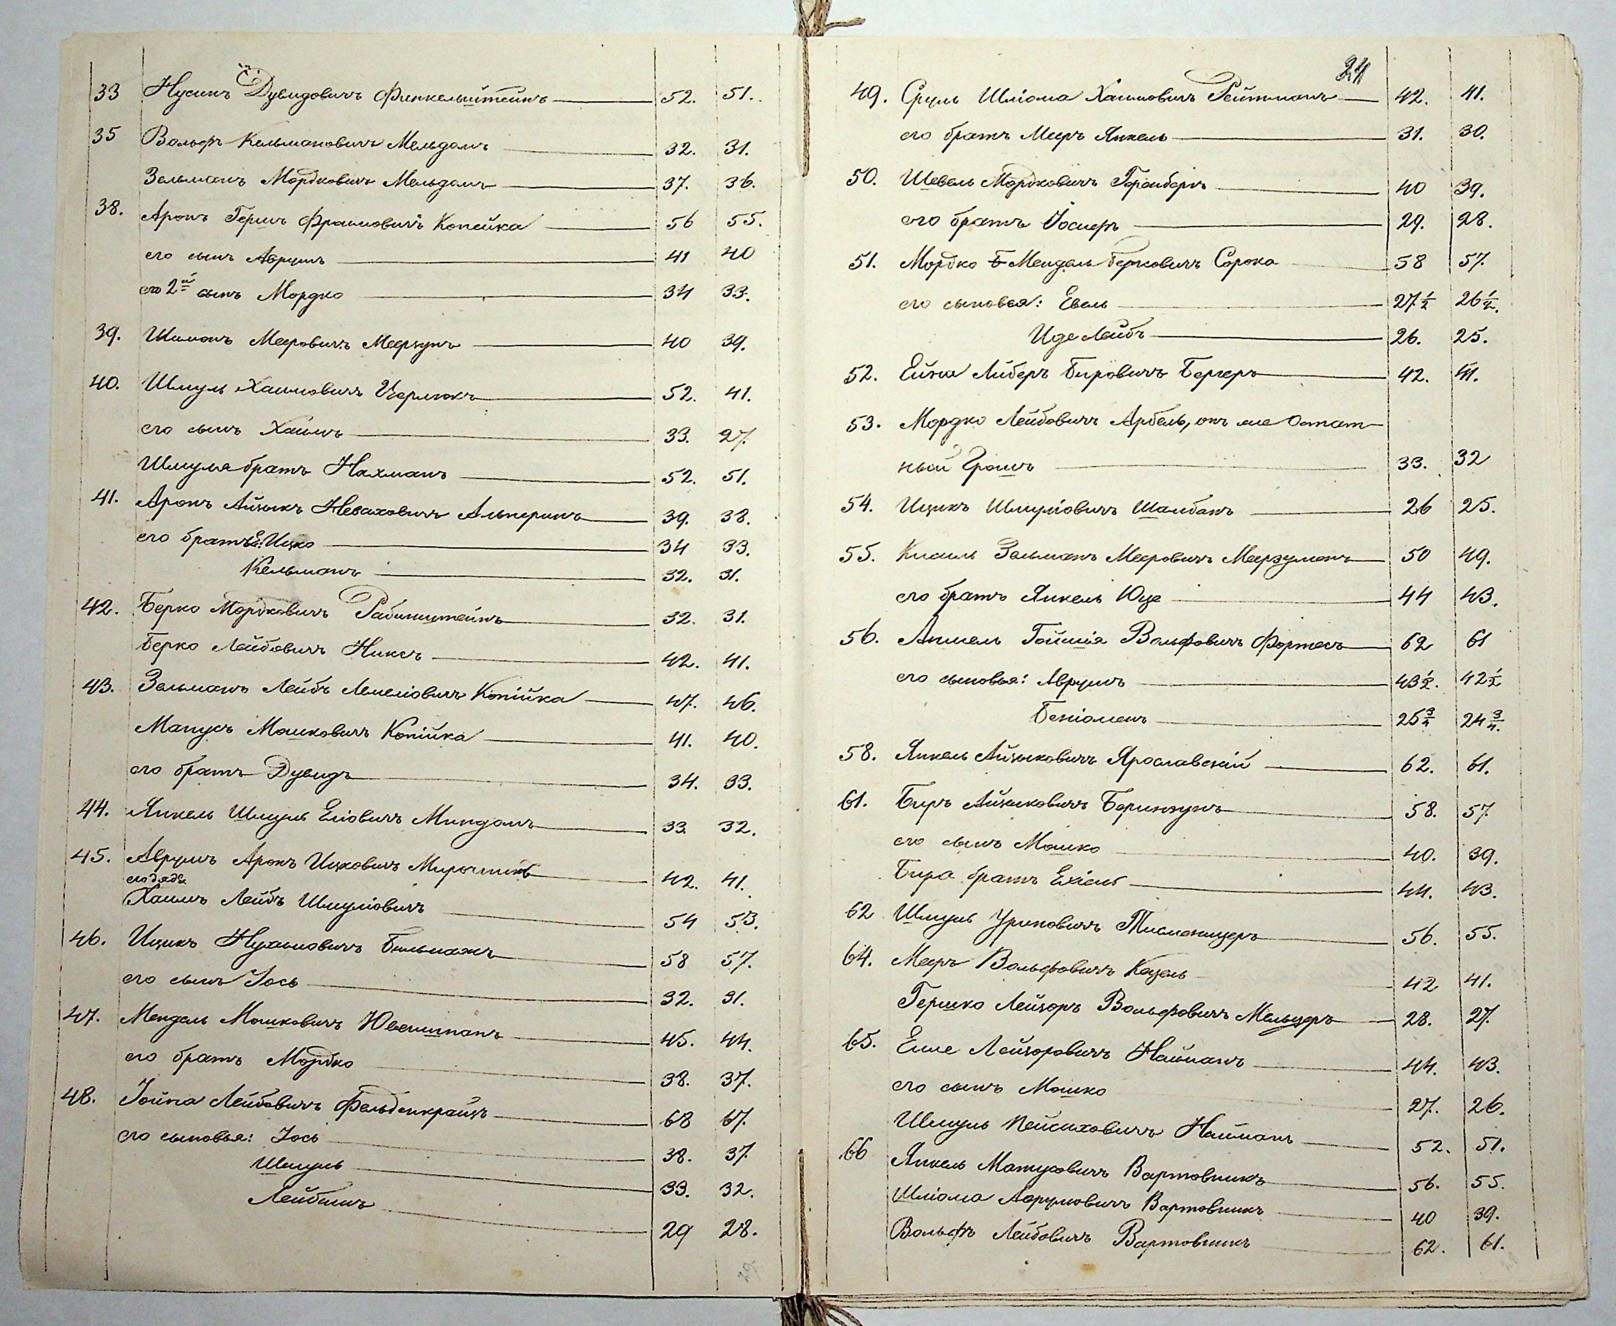 33 Нусинъ Дувидовичъ Финкельштейнъ 52. 51.
35 Вольфъ Кельмановичъ Мельдомъ 32. 31.
Зельманъ Мордковичъ Мельдомъ 37. 36.
38. Аронъ Гершъ Фроимовичъ Копейка 56 55.
его сынъ Аврумъ 41 40
его 2й сынъ Мордко 34 33.
39. Шимонъ Мееровичъ 40 39.
40. Шмуль Хаимовичъ 52. 41.
его сынъ Хаимъ 33. 27.
Шмуля братъ Нахманъ 52. 51.
41. Аронъ Айзыкъ Неваховичъ Альперинъ 39. 38.
его братья: Ицко 34 33.
Кельманъ 32. 31.
42. Берко Мордковичъ Рабинштейнъ 32. 31.
Берко Лейбовичъ Никсъ 42. 41.
43. Зельманъ Лейбъ Копійка 47. 46.
Манусъ Мошковичъ Копійка 41. 40.
его братъ Дувидъ 34. 33.
44. Янкель Шмуль Еліовичъ Миндомъ 33. 32.
45. Аврумъ Аронъ Ицковичъ Мирочникъ 42. 41.
его дядя
Хаимъ Лейбъ Шмуліовичъ 54 53.
46. Ицикъ Нухимовичъ 58 57.
его сынъ Іось 32. 31.
47. Мендель Мошковичъ 45. 44.
его братъ Мордко 38. 37.
48. Іойна Лейбовичъ Фельденкрайзъ 68 67.
его сыновья: Іось 38. 37
Шмуль 33. 32.
Лейбишъ 29 28.
24
49. Сруль Шліома Хаимовичъ Рейтманъ 42. 41.
его братъ Мееръ Янкель 31. 30.
50. Шевель Мордковичъ 40 39.
его братъ Іосифъ 29. 28.
51. Мордко Мендель Берковичъ Сорока 58 57.
его сыновья: Евель 27½ 26½.
Иде Лейбъ 26. 25.
52. Ейна Либеръ Бировичъ Бергеръ 42. 41.
53. Мордко Лейбовичъ Арбель, онъ же Остат-
ный Грошъ 33. 32
54. Ицикъ Шмуліовичъ 26 25.
55. Кисиль Зельманъ Мееровичъ 50 49.
его братъ Янкель Юде 44 43.
56. Аншель Гойшія Вольфовичъ Фортесъ 62 61
его сыновья: Аврумъ 43½. 42½
Беніоменъ 25¾ 24¾.
58. Янкель Айзыковичъ Ярославскій 62. 61.
61. Биръ Айзиковичъ 58. 57
его сынъ Мошко 40. 39.
Бира братъ Ехіель 44. 43.
62 Шмуль Уриновичъ Тисменицеръ 56. 55.
64. Мееръ Вольфовичъ Козель 42 41.
Гершко Лейзоръ Вольфовичъ Мельцеръ 28. 27.
65. Еише Лейзоровичъ Найманъ 44. 43.
его сынъ Мошко 27. 26.
Шмуль Пейсиховичъ Найманъ 52. 51.
66 Янкель Вартовникъ 56. 55.
Шліома Аврумовичъ Вартовникъ 40 39.
Вольфъ Лейбовичъ Вартовникъ 62. 61.